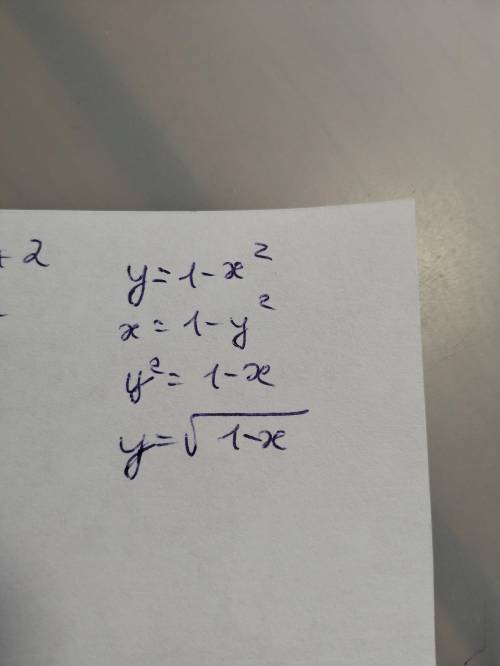 + 2
y = 1 - x²
x = 1 - y²
y² = 1 - x
y = √(1-x)